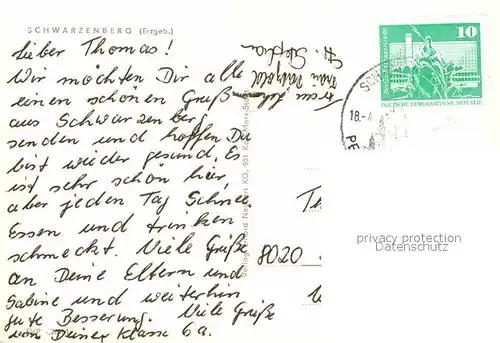 SCHWARZENBERG (Erzgeb.)
Lieber Thomas!
Wir möchten Dir alle
einen schönen Gruß
aus Schwarzenberg
senden und hoffen Du
bist wieder gesund. Es
ist sehr schön hier,
aber jeden Tag Schnee.
Essen und trinken
schmeckt. Viele Grüße
an Deine Eltern und
Sabine und weiterhin
gute Besserung. Viele Grüße
von Deiner Klasse 6a.
Frau
H. Stephan
KG, 901 Karl-Marx-Stadt
10
DEUTSCHE DEMOKRATISCHE REPUBLIK
18.-4
8020
privacy protection
Datenschutz